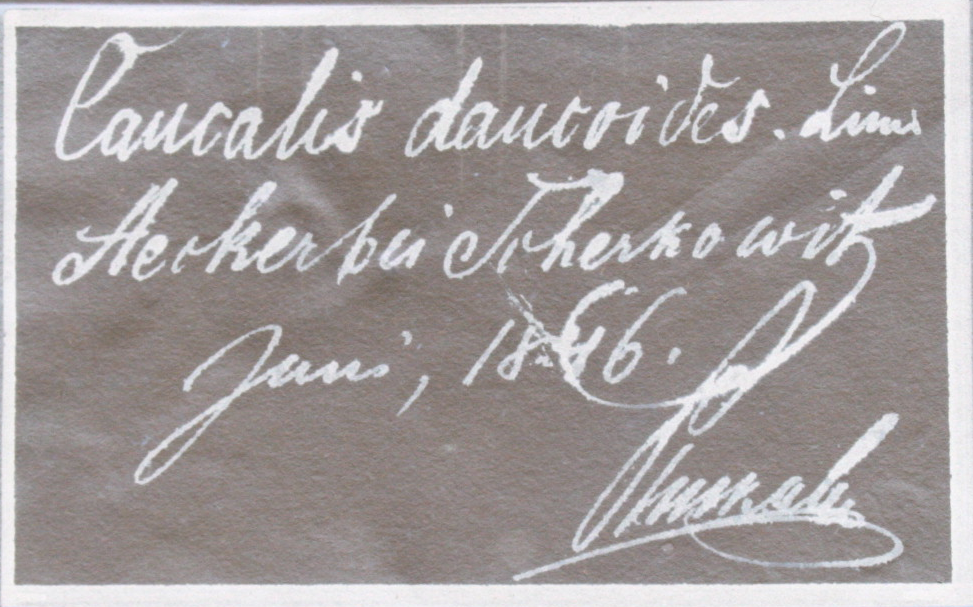 Caucalis daucoides. Linn
Aecker bei Tscherkowitz
Juni, 1846.